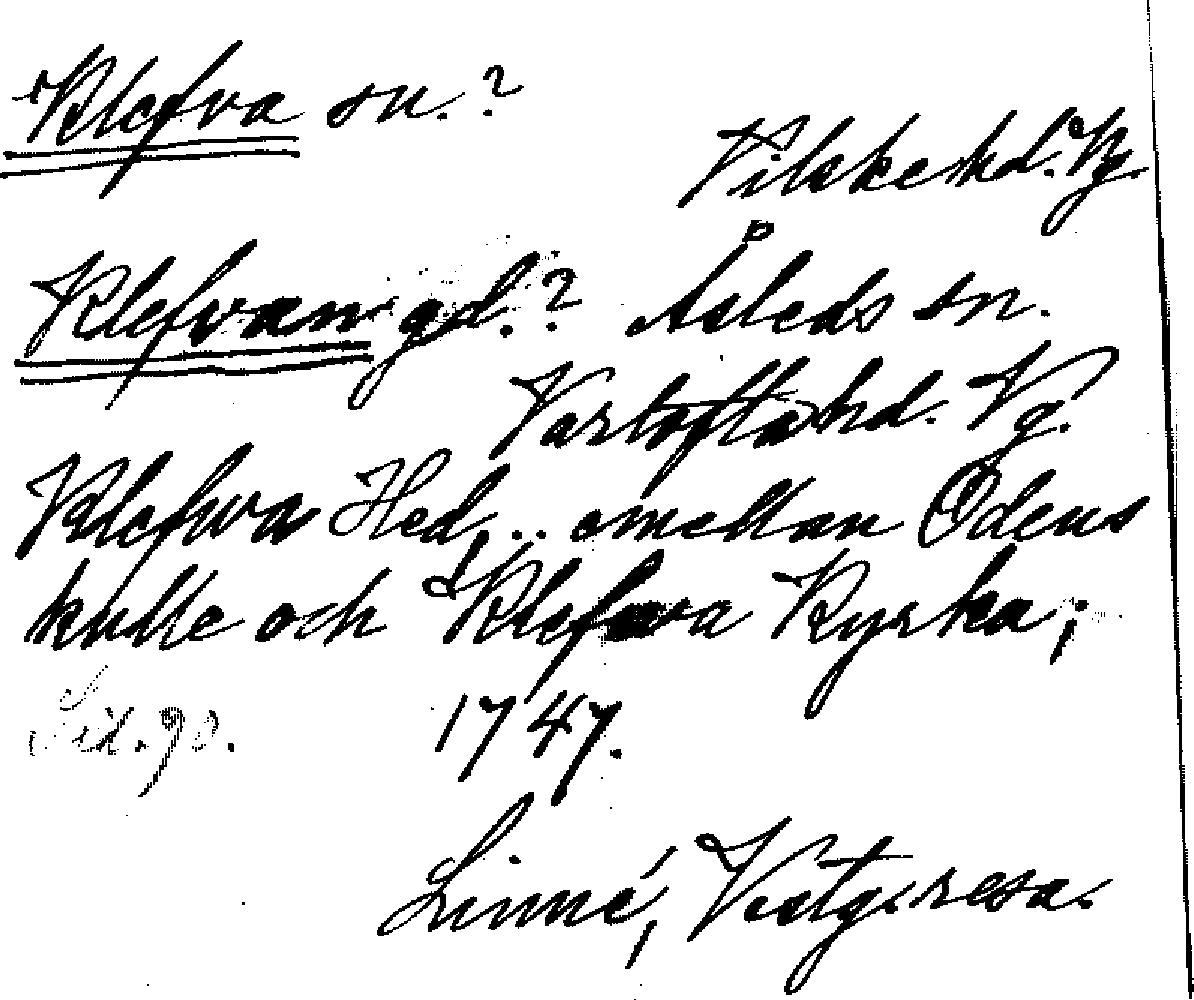 ¹Klefva sn.?
Vilske hd. Vg.
Klefvan gd.? Åsleds sn.
Vartofta hd. Vg.
Klefwa Hed,.. emellan Odens
kulle och ¹Klefwa Kyrka;
1747.
Sid. 90.
Linné, Västg. resa.